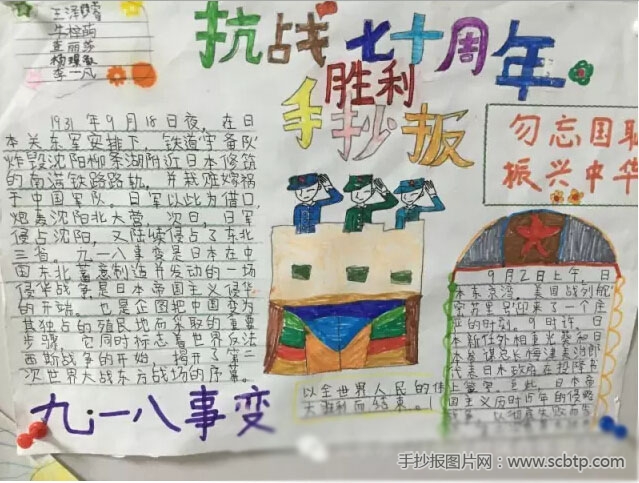 王泽
杨
李一凡
抗战七十周年
胜利
手抄报
勿忘国耻
振兴中华
1931年9月18日夜，在日
本关东军安排下，铁道守备队
炸毁沈阳柳条湖附近日本修筑
的南满铁路路轨，并栽赃嫁祸
于中国军队。日军以此为借口，
炮轰沈阳北大营。次日，日军
侵占沈阳，又陆续侵占了东北
三省。九一八事变是日本在中
国东北蓄意制造并发动的一场
侵华战争是日本帝国主义侵华
的开端。也是企图把中国变为
其独占的殖民地而采取的重要
步骤。它同时标志着世界反法
西斯战争的开始，揭开了第二
次世界大战东方战场的序幕。
九·一八事变
9月2日上午，日
本东京湾，美国战列舰
密苏里号迎来了一个庄
的时刻。9时许，日
本新任外相重光葵和日
本参谋总长梅津美治郎
代表日本政府在投降书
上签字。至此，日本帝
国主义历时近年的侵略
以全世界人民的伟
大胜利而结束。
手抄报图片网：www.scbtp.com